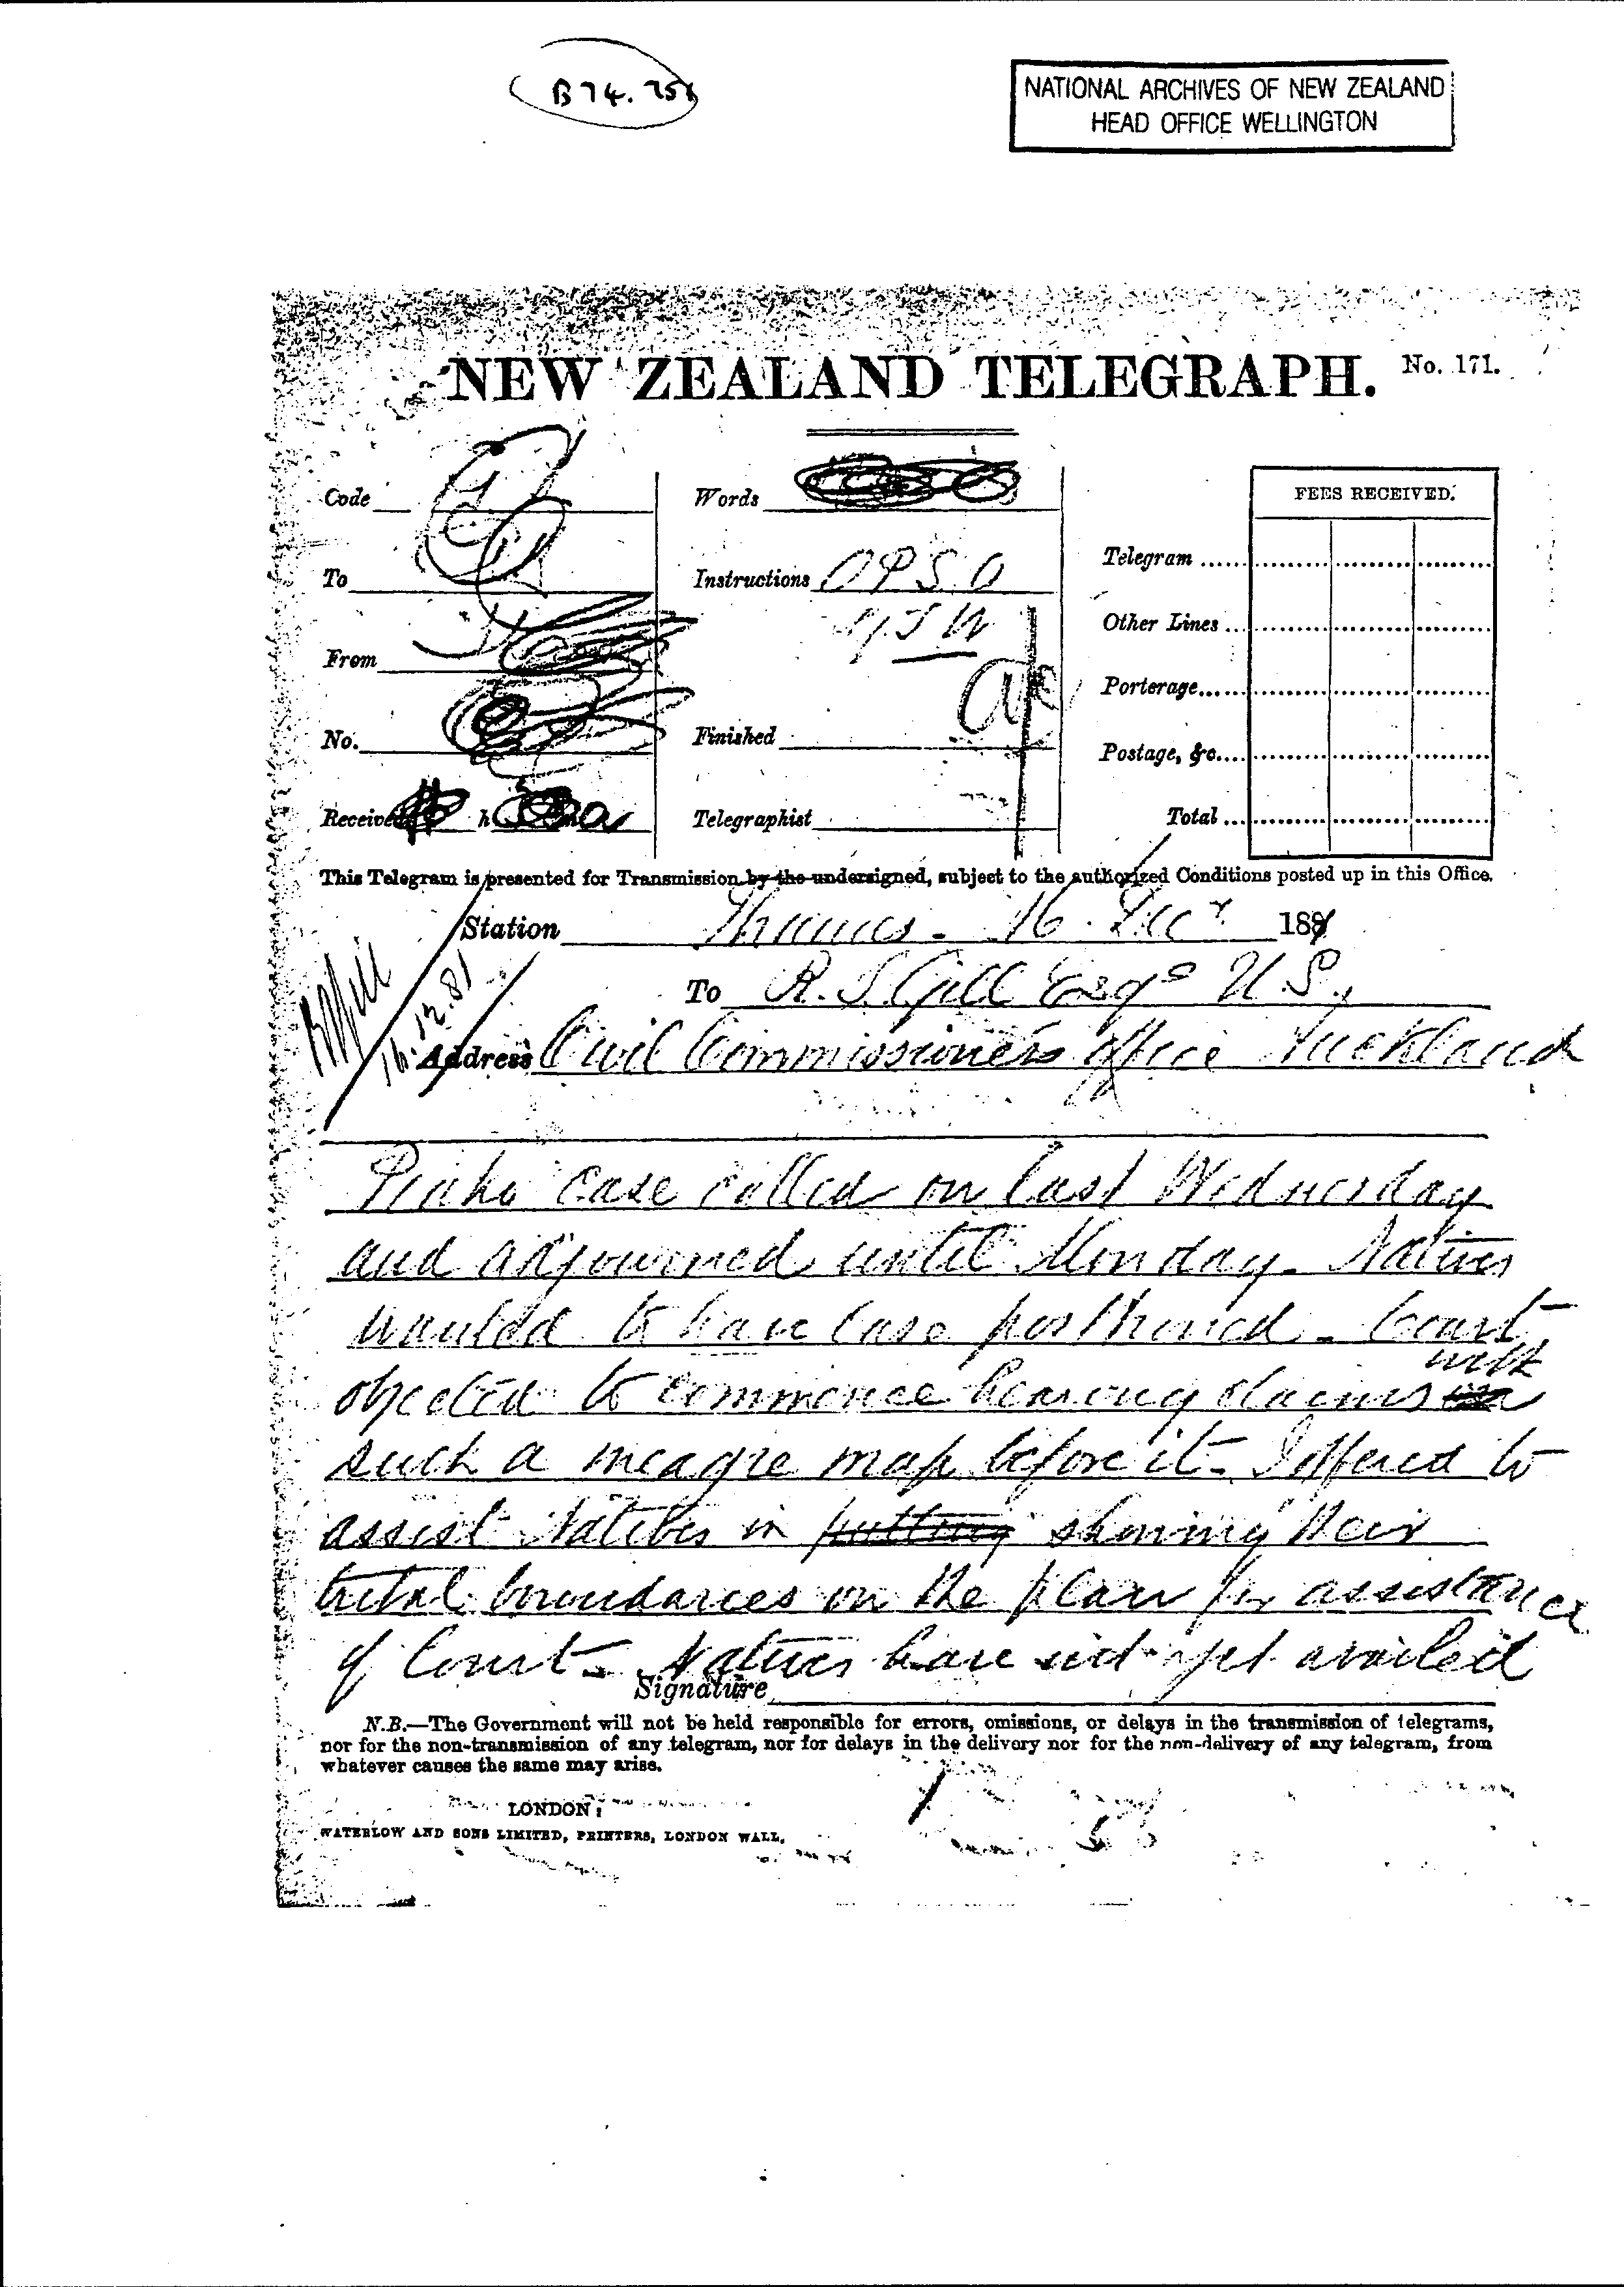 B74.758
NATIONAL ARCHIVES OF NEW ZEALAND
HEAD OFFICE WELLINGTON
NEW ZEALAND TELEGRAPH. No. 171.
Code
Words
FEES RECEIVED.
To
Instructions OPSO
Telegram
Other Lines
From
Porterage
No.
Finished
Postage, &c.
Received h
Telegraphist
Total
This Telegram is presented for Transmission by the undersigned, subject to the authorized Conditions posted up in this Office.
Station Thames - 16. Decr 1881
16.12.81
To R. J. Gill Esqe U.S.,
Address Civil Commissioners office Auckland
Piako case called on last Wednesday
and adjourned until Monday - Natives
wanted to have case postponed - Court
objected to commence hearing claims with
such a meagre map before it - I offered to
assist Natives in putting showing their
tribal boundaries on the plan for assistance
of Court - Natives have not yet availed
Signature
N.B.—The Government will not be held responsible for errors, omissions, or delays in the transmission of telegrams,
nor for the non-transmission of any telegram, nor for delays in the delivery nor for the non-delivery of any telegram, from
whatever causes the same may arise.
LONDON:
WATERLOW AND SONS LIMITED, PRINTERS, LONDON WALL.